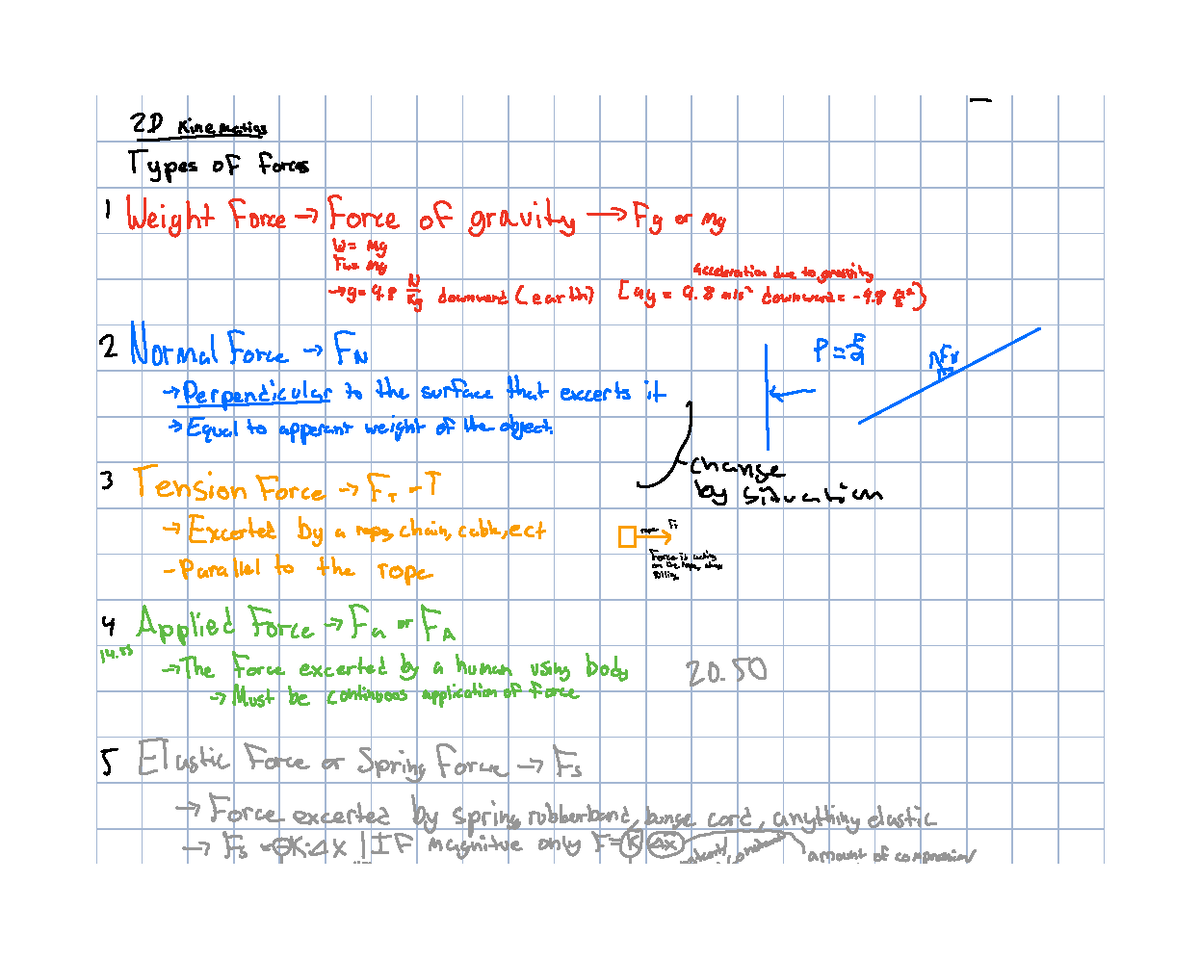 2D Kinematics
Types of Forces
1 Weight Force → Force of gravity → Fg or mg
W = mg
Fw = mg
→ g = 9.8 N/kg downward (earth) [ay = 9.8 m/s² downward = -9.8 m/s²]
Acceleration due to gravity
2 Normal Force → FN
→ Perpendicular to the surface that excerts it
→ Equal to apperant weight of the object.
P = F/a
FN
change
by situation
3 Tension Force → FT - T
→ Excerted by a rope, chain, cable, ect
- Parallel to the rope
rope FT
Force is acting
on the rope,
4 Applied Force → Fa or FA
14.55
→ The Force excerted by a human using body
→ Must be continuous application of Force
20.50
5 Elastic Force or Spring Force → Fs
→ Force excerted by spring, rubberband, bunge cord, anything elastic
→ Fs = -K·Δx | IF magnitue only F = K Δx
amount of compression/